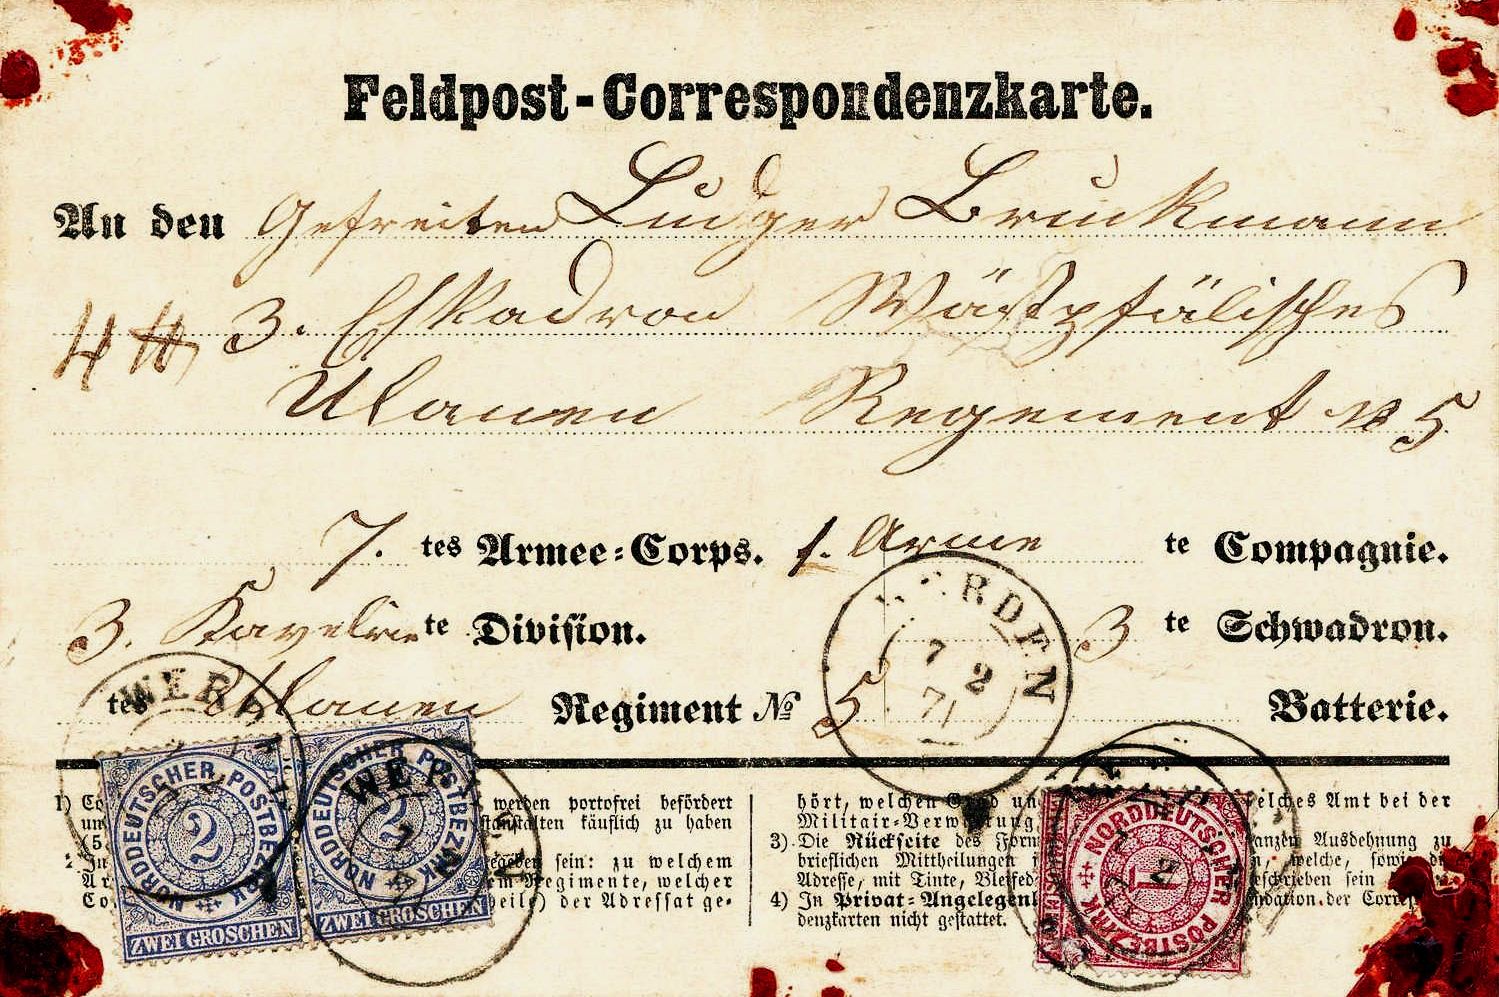 Feldpost-Correspondenzkarte.
An den Gefreiten Ludger Bruckmann
3. Eskadron Wästpfälisches
Ulanen Regement № 5
7. tes Armee-Corps. 1. Arme te Compagnie.
3. Kavelrie te Division. 3 te Schwadron.
tes Ulanen Regiment № 5 Batterie.
WERDEN
7 2
71
WERD
WER
NORDDEUTSCHER POSTBEZIRK
2
ZWEI GROSCHEN
NORDDEUTSCHER POSTBEZIRK
2
ZWEI GROSCHEN
NORDDEUTSCHER POSTBEZIRK
1
1) Co werden portofrei befördert
un stanstalten käuflich zu haben
(5
2 In egeben sein: zu welchem
Ar em Regimente, welcher
Co heile) der Adressat ge-
hört, welchen Grad un welches Amt bei der
Militair-Verwaltung
3) Die Rückseite des Form ganzen Ausdehnung zu
brieflichen Mittheilungen welche, sowie die
Adresse, mit Tinte, Bleifed eschrieben sein
4) In Privat-Angelegenh der Corres
denzkarten nicht gestattet.